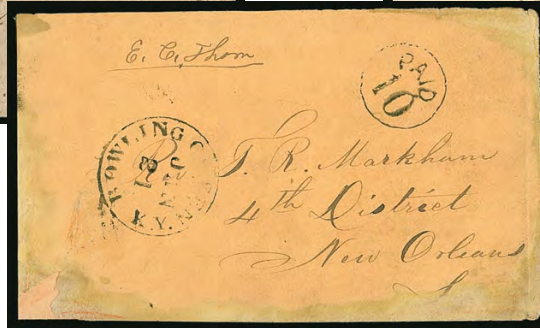 E. C. Thom
PAID
10
BOWLING GREEN
DEC
K.Y.
T. R. Markham
4th District
New Orleans